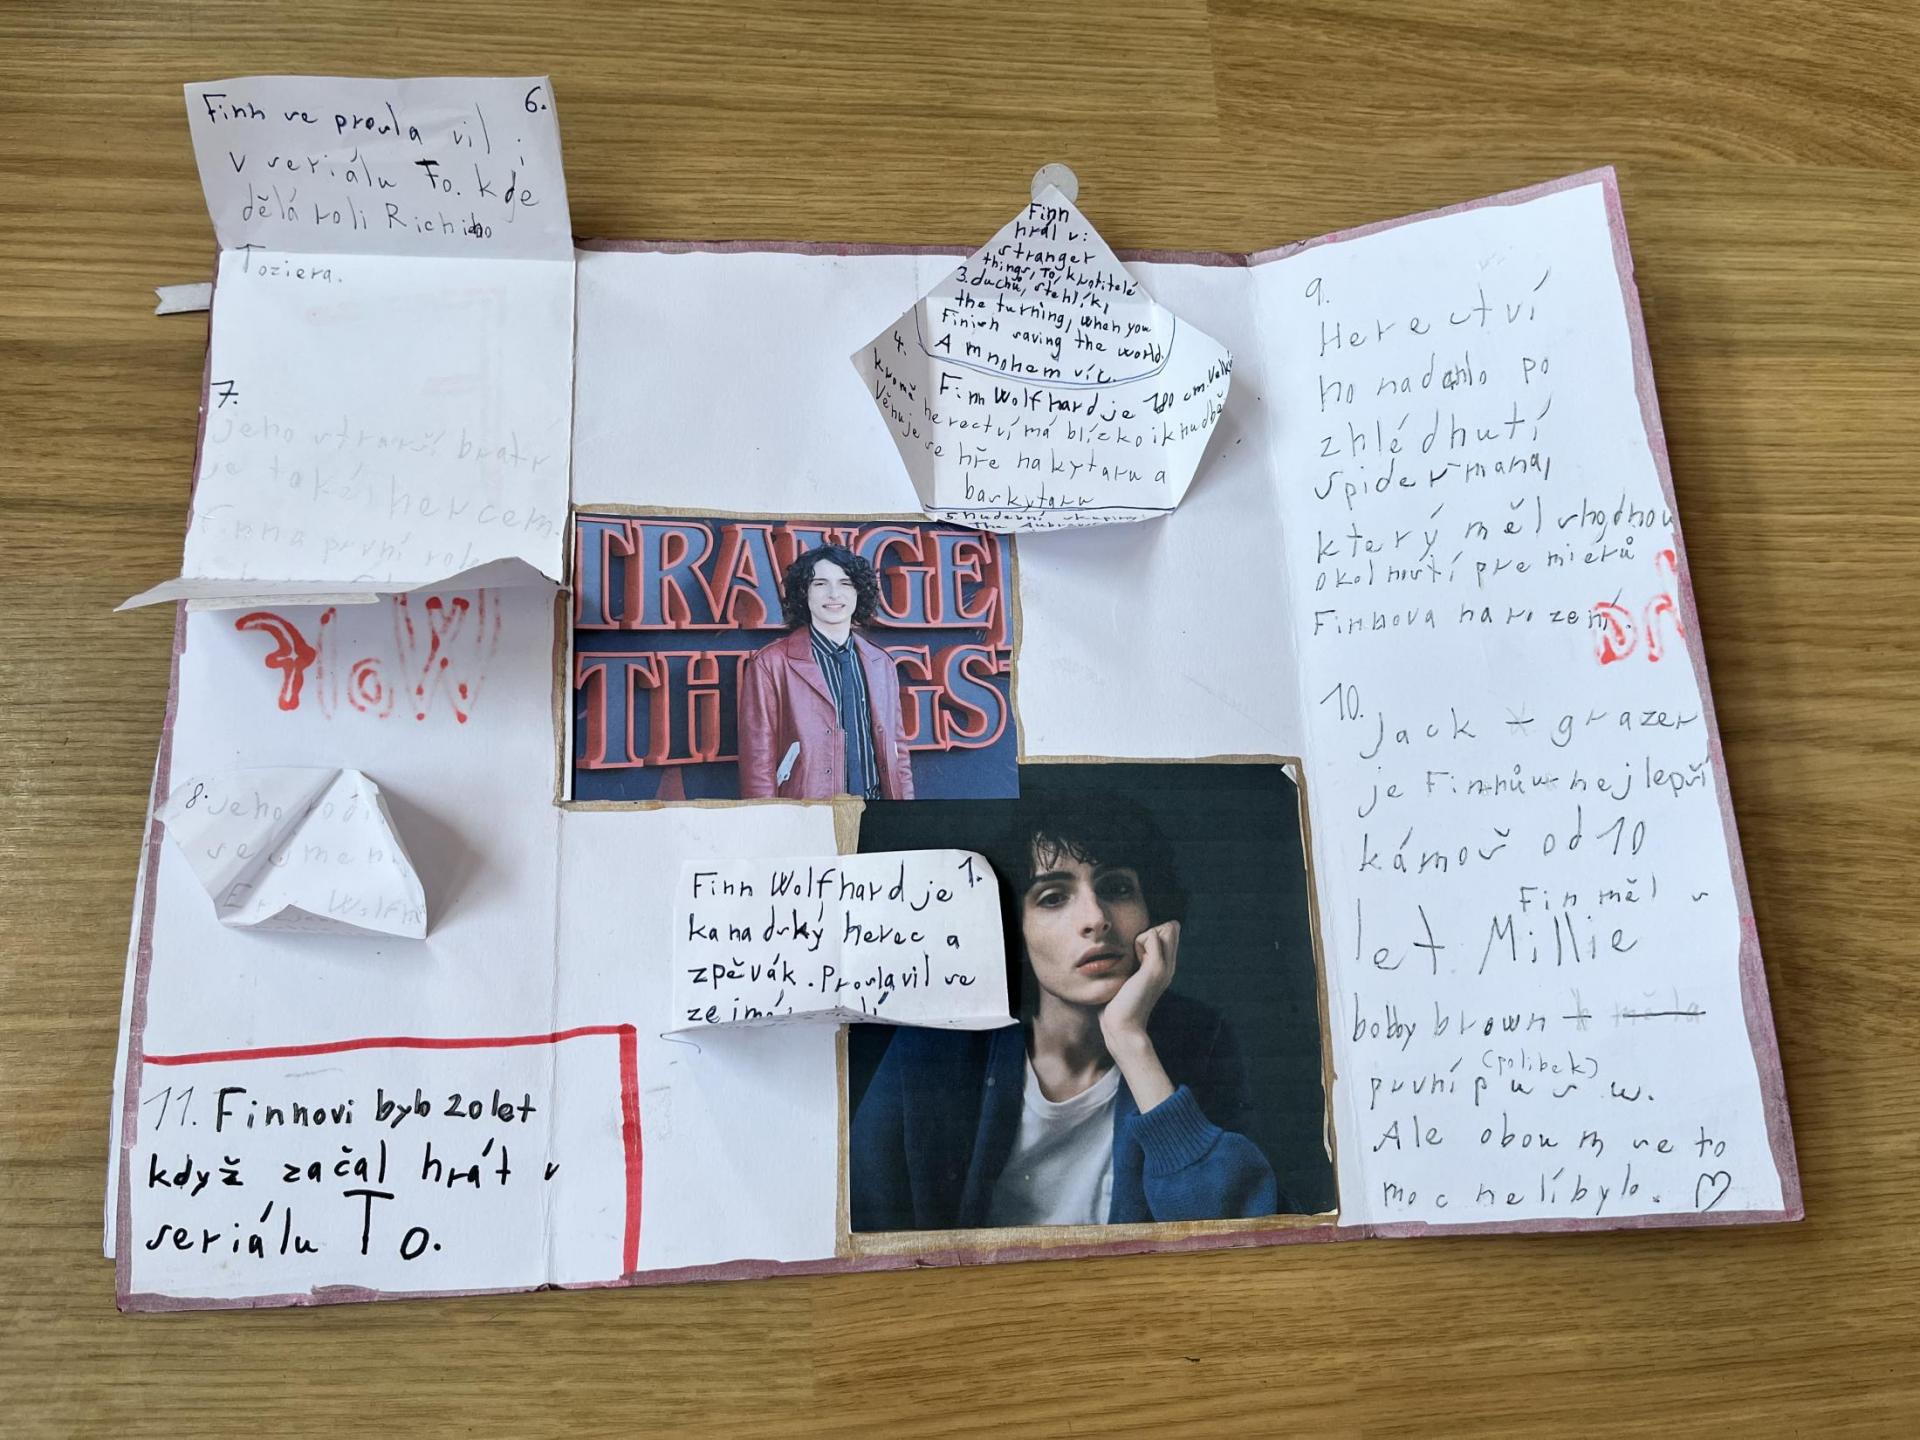 6.
Finn se proslavil i
v seriálu To. kde
dělá roli Richiho
Toziera.
7.
jeho starší bratr
je také hercem.
Finna první role
8. Jeho rodi
se jmen
Wolfha
Wolf
11. Finnovi bylo 20 let
když začal hrát v
seriálu To.
Finn
hrál v:
stranger
things, To, krotitelé
3. duchů, stehlík,
the turning, when you
Finish saving the world.
A mnohem víc.
4.
Finn Wolfhard je 180 cm. Velký
kromě herectví má blízko i k hudbě
Věnuje se hře na kytaru a
baskytaru
5. Hudební skupiny
The
STRANGE
THINGS
Finn Wolfhard je 1.
kanadský herec a
zpěvák. Proslavil se
zejmé
9.
Herectví
ho nadchlo po
zhlédnutí
spidermana,
který měl shodnou
okolností premiéru
Finnova narození.
10.
Jack grazer
je Finnův nejlepší
kámoš od 10
let. Fin měl s
Millie
bobby brown měla
první pusu. (polibek)
Ale oboum se to
moc nelíbylo. ♡